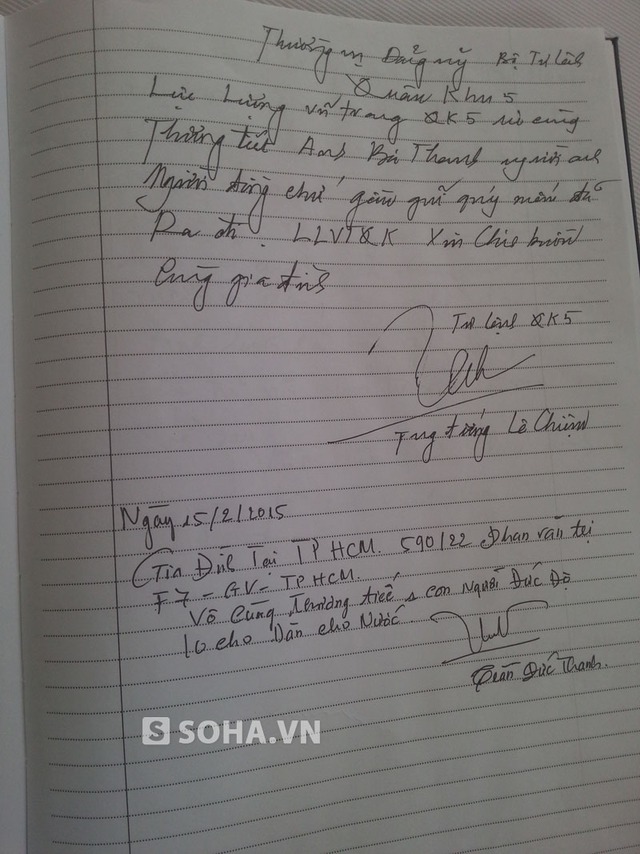 Thường vụ Đảng ủy Bộ Tư Lệnh
Quân Khu 5
Lực Lượng vũ trang QK5 vô cùng
Thương tiếc Anh Bá Thanh người anh
Người đồng chí gần gũi quý mến đã
Ra đi. LLVTQK Xin Chia buồn
Cùng gia đình
Tư lệnh QK5
Tng tướng Lê Chiêm
Ngày 15/2/2015
Gia Đình Tại TP HCM. 590/22 Phan văn trị
F7 - GV - TP HCM.
Vô Cùng Thương tiếc 1 con Người Đức Độ
lo cho Dân cho Nước.
Trần Đức Thanh.
SOHA.VN